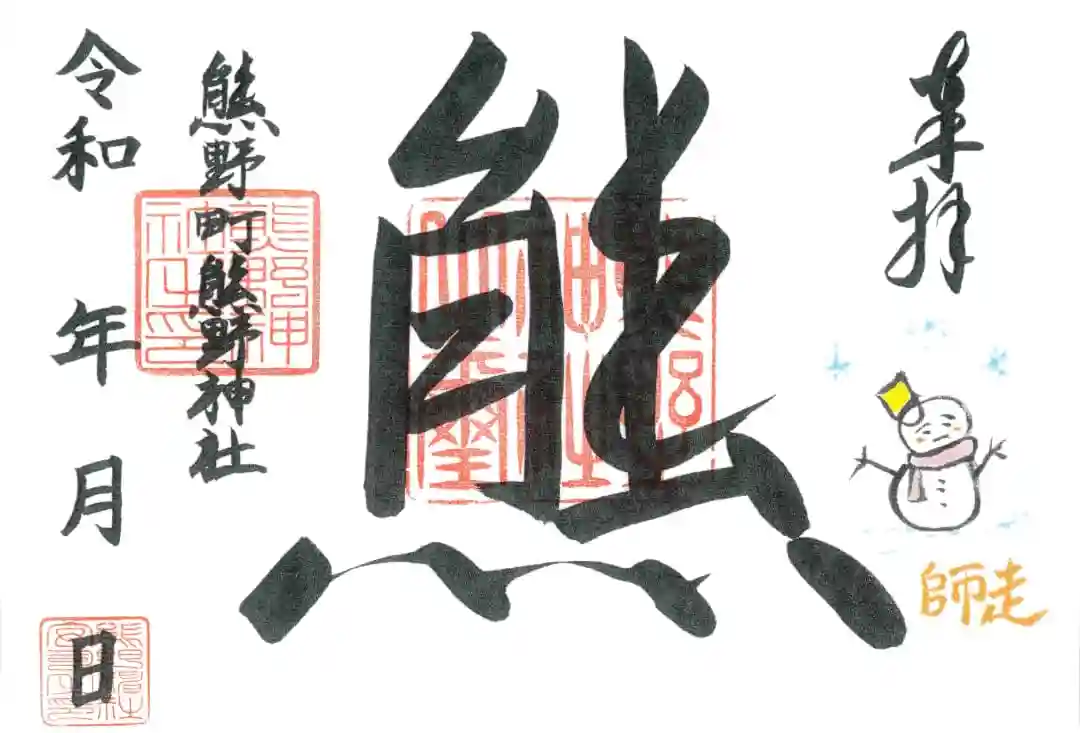 奉拝
師走
熊
熊野町熊野神社
令和 年 月 日